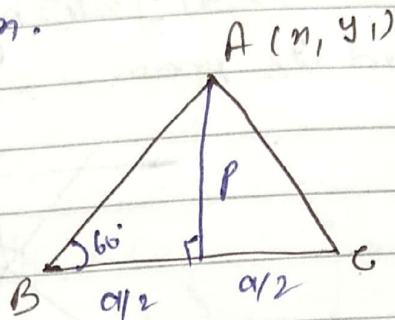 A (x, y1)
P
60°
B
a/2
a/2
C